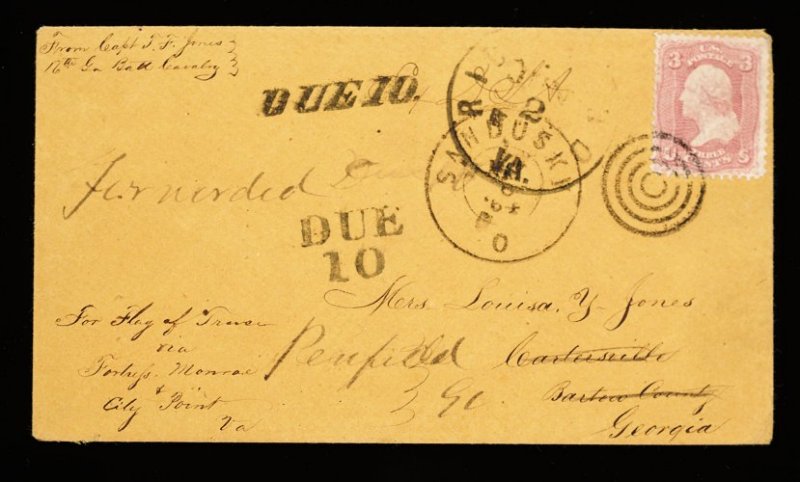 From Capt J. F. Jones
12th Ga Batt Cavalry
DUE 10.
U.S.
POSTAGE
3
3
THREE
CENTS
R
2
VA.
D
SANDUSKI
'64
O
Forwarded Due
DUE
10
Mers. Louisa. Y. Jones
Cartersville
Bartow County
Georgia
Penfield
Ga
For Flag of Truce
via
Fortress. Monroe
&
City Point
Va